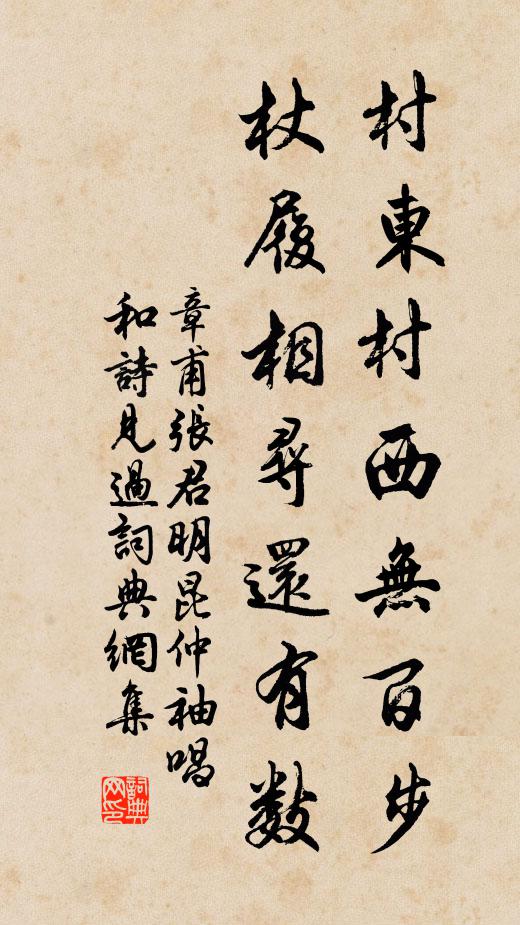 村東村西無百步
杖履相尋還有數
章甫張君明昆仲袖唱
和詩見過詞典網集
詞典网印